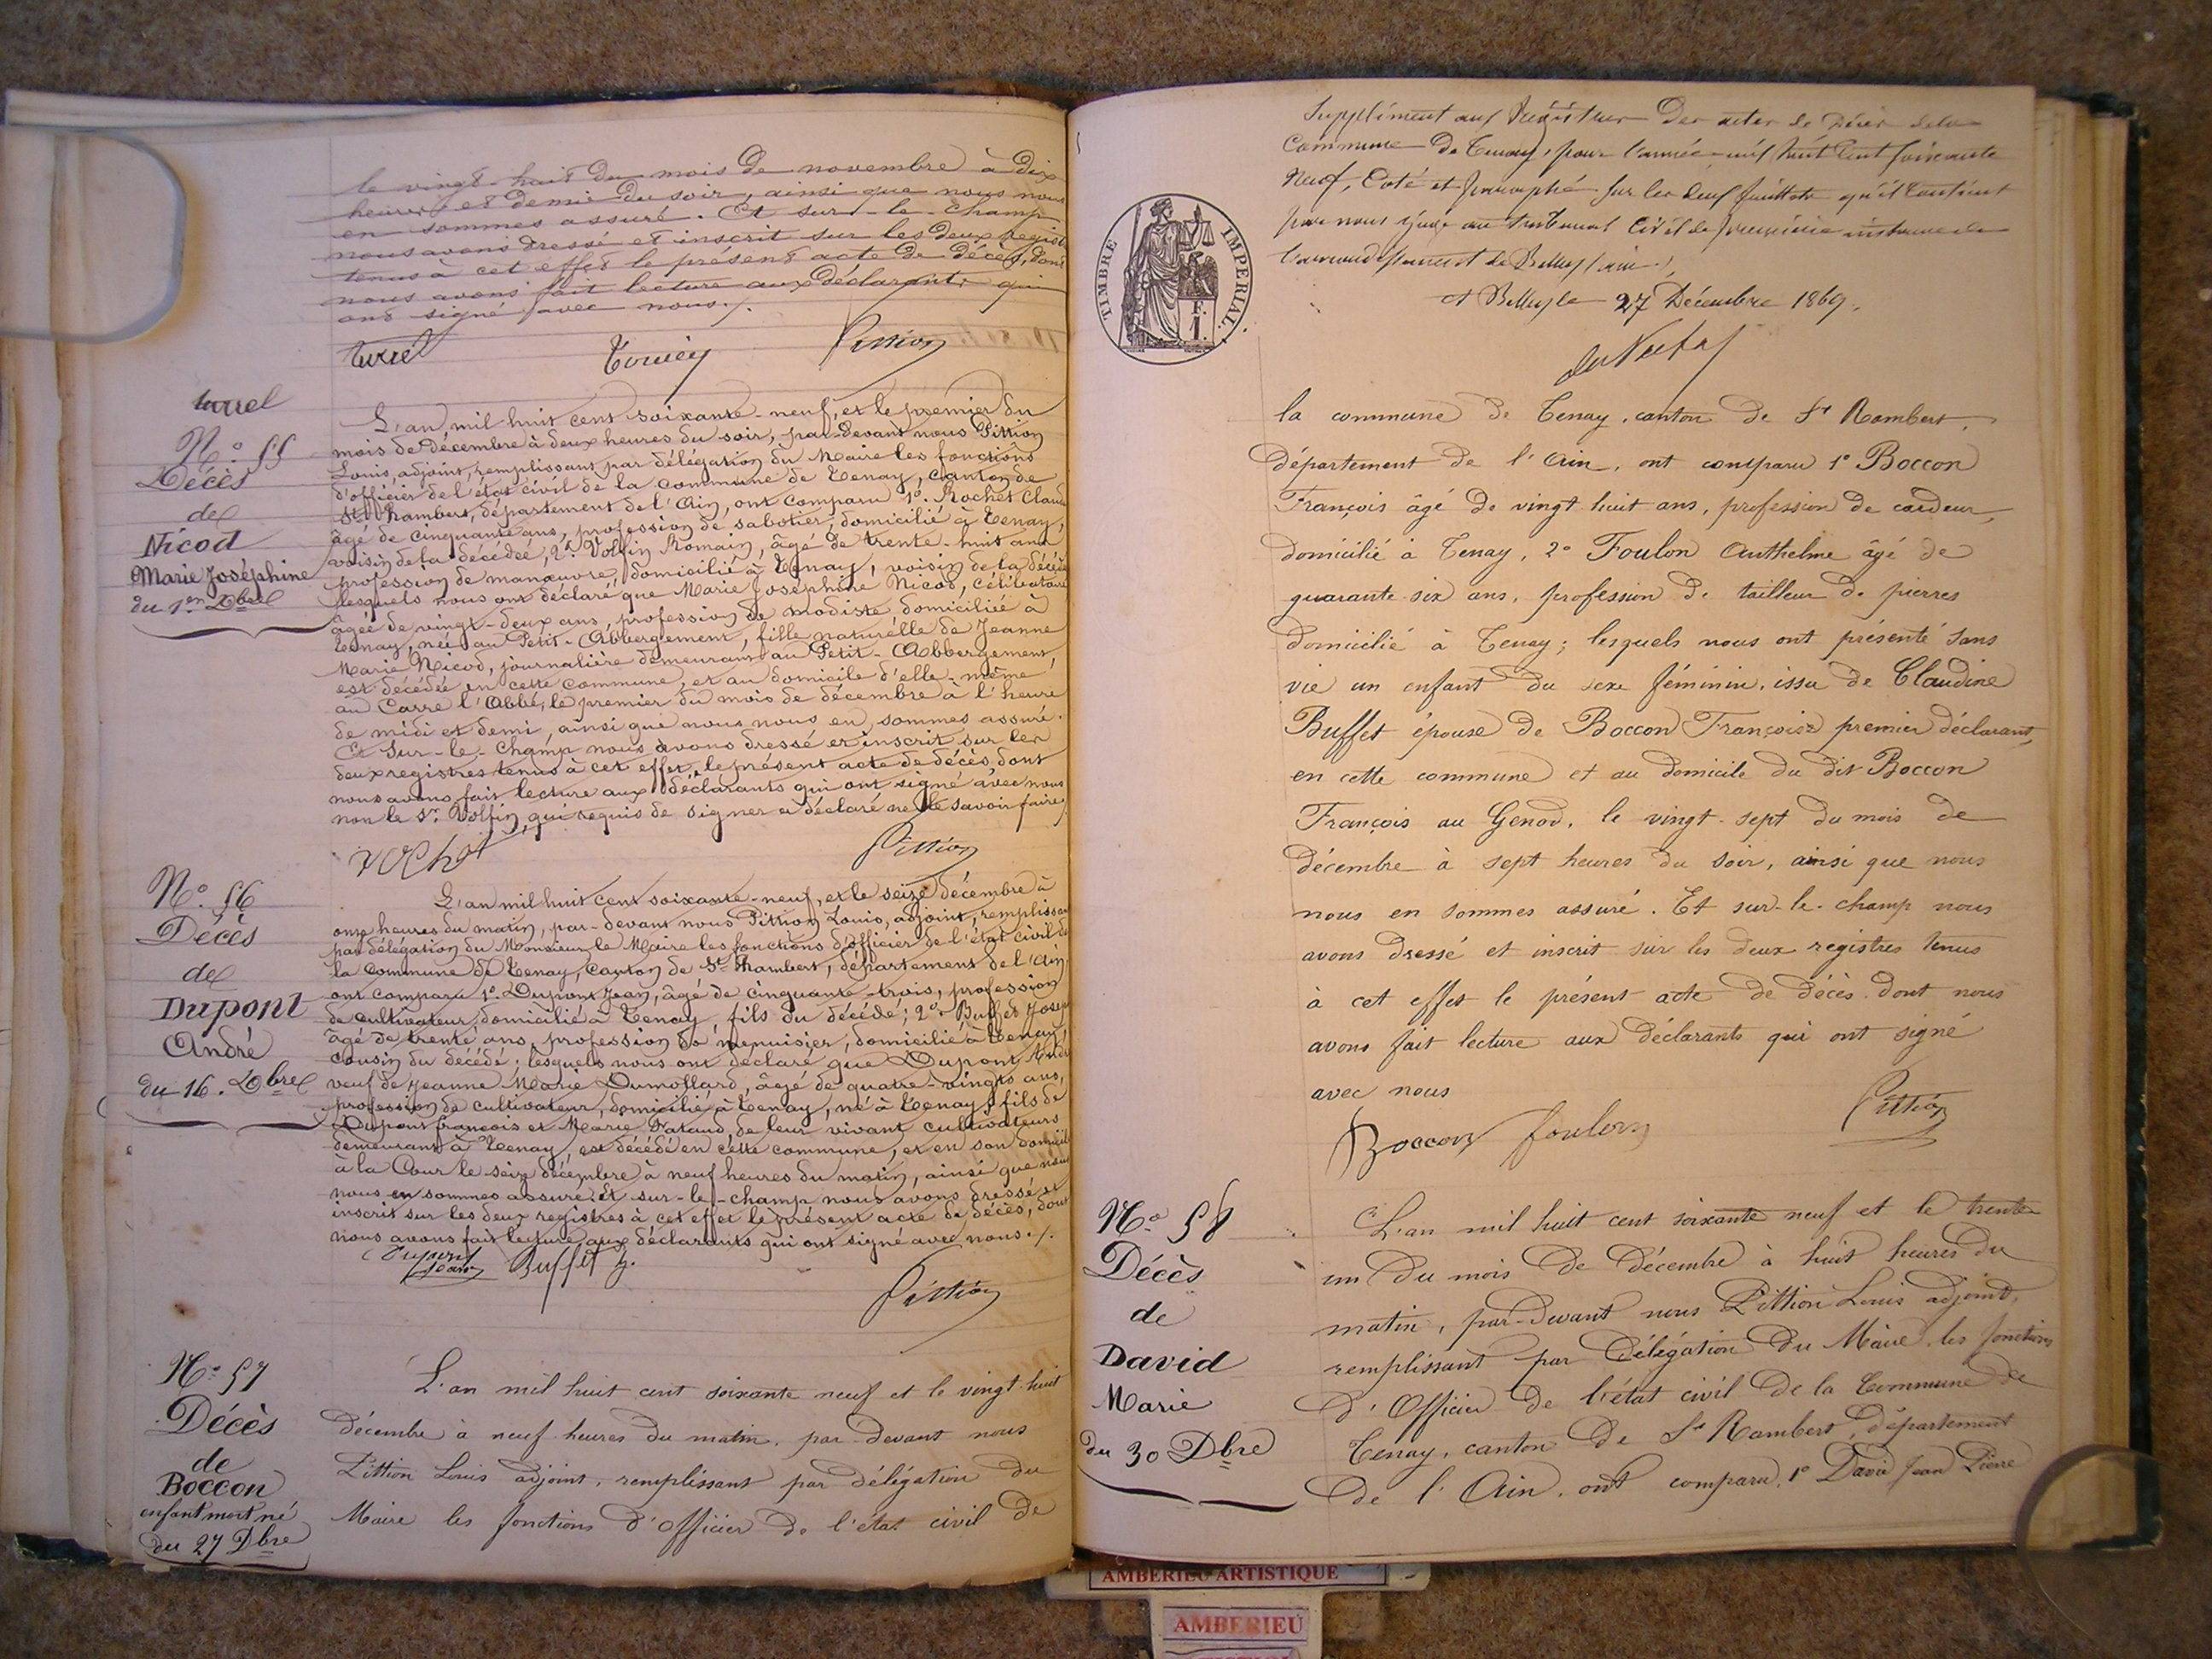 le vingt-huit du mois de novembre à dix
heures et demie du soir, ainsi que nous nous
en sommes assuré. Et sur-le-champ
nous avons dressé et inscrit sur les deux regist
tenus à cet effet le présent acte de décès, dont
nous avons fait lecture aux déclarants qui
ont signé avec nous./.
turrel
Pittion
turrel
N.o 55
Décès
de
Nicod
Marie Joséphine
du 1.er Xbre
L'an mil huit cent soixante-neuf, et le premier du
mois de décembre à deux heures du soir, par-devant nous Pittion
Louis, adjoint, remplissant par délégation du Maire les fonctions
d'officier de l'état civil de la commune de Tenay, canton de
St Rambert, département de l'Ain, ont comparu 1.o Rochet Claude
âgé de cinquante ans, profession de sabotier, domicilié à Tenay,
voisin de la décédée, 2.o Volfin Romain, âgé de trente-huit ans
profession de manœuvre, domicilié à Tenay, voisin de la décédée
lesquels nous ont déclaré que Marie Joséphine Nicod, célibataire
âgée de vingt-deux ans, profession de modiste domiciliée à
Tenay, née au Petit-Abbergement, fille naturelle de Jeanne
Marie Nicod, journalière demeurant au Petit-Abbergement,
est décédée en cette commune, et au domicile d'elle-même
au Carre l'Abbé, le premier du mois de décembre à l'heure
de midi et demi, ainsi que nous nous en sommes assuré.
Et sur-le-champ nous avons dressé et inscrit sur les
deux registres tenus à cet effet, le présent acte de décès, dont
nous avons fait lecture aux déclarants qui ont signé avec nous
non le Sr. Volfin, qui requis de signer a déclaré ne le savoir faire./.
rochet
Pittion
N.o 56
Décès
de
Dupont
André
du 16. Xbre
L'an mil huit cent soixante-neuf, et le seize décembre à
onze heures du matin, par-devant nous Pittion Louis, adjoint, remplissant
par délégation du Monsieur le Maire les fonctions d'officier de l'état civil de
la commune de Tenay, canton de St Rambert, département de l'Ain
ont comparu 1.o Dupont Jean, âgé de cinquante-trois, profession
de cultivateur, domicilié à Tenay, fils du décédé; 2.o Buffet Joseph
âgé de trente ans, profession de menuisier, domicilié à Tenay,
cousin du décédé; lesquels nous ont déclaré que Dupont André
veuf de Jeanne Marie Dumollard, âgé de quatre-vingts ans,
profession de cultivateur, domicilié à Tenay, né à Tenay, fils de
Dupont françois et Marie de leur vivant cultivateurs
demeurant à Tenay, est décédé en cette commune, et en son domicile
à la Cour le seize décembre à neuf heures du matin, ainsi que nous
nous en sommes assuré. Et sur-le-champ nous avons dressé et
inscrit sur les deux registres à cet effet le présent acte de décès, dont
nous avons fait lecture aux déclarants qui ont signé avec nous./.
Dupont
Jean
Buffet J.
Pittion
N.o 57
Décès
de
Boccon
enfant mort né
du 27 Dbre
L'an mil huit cent soixante neuf et le vingt-huit
décembre à neuf heures du matin, par-devant nous
Pittion Louis adjoint, remplissant par délégation du
Maire les fonctions d'officier de l'état civil de
Supplément aux Registres des actes de Décès de la
Commune de Tenay, pour l'année mil huit cent soixante
neuf, Coté et paraphé sur les deux feuillets qu'il contient
par nous Juge au tribunal Civil de première instance de
l'arrondissement de Belley (ain).
A Belley le 27 Décembre 1869.
TIMBRE IMPERIAL.
F.
1.
la commune de Tenay, canton de St Rambert,
département de l'Ain, ont comparu 1o Boccon
François âgé de vingt huit ans, profession de cardeur,
domicilié à Tenay, 2o Foulon Anthelme âgé de
quarante-six ans, profession de tailleur de pierres
domicilié à Tenay; lesquels nous ont présenté sans
vie un enfant du sexe féminin, issu de Claudine
Buffet épouse de Boccon François premier déclarant,
en cette commune et au domicile du dit Boccon
François au Genod, le vingt-sept du mois de
décembre à sept heures du soir, ainsi que nous
nous en sommes assuré. Et sur-le-champ nous
avons dressé et inscrit sur les deux registres tenus
à cet effet le présent acte de décès dont nous
avons fait lecture aux déclarants qui ont signé
avec nous
Boccon foulon
Pittion
N.o 58
Décès
de
David
Marie
du 30 Dbre
L'an mil huit cent soixante neuf et le trente
un du mois de décembre à huit heures du
matin, par-devant nous Pittion Louis adjoint,
remplissant par délégation du Maire les fonctions
d'Officier de l'état civil de la Commune de
Tenay, canton de St Rambert, département
de l'Ain, ont comparu, 1o David Jean Pierre
AMBERIEU ARTISTIQUE
AMBERIEU